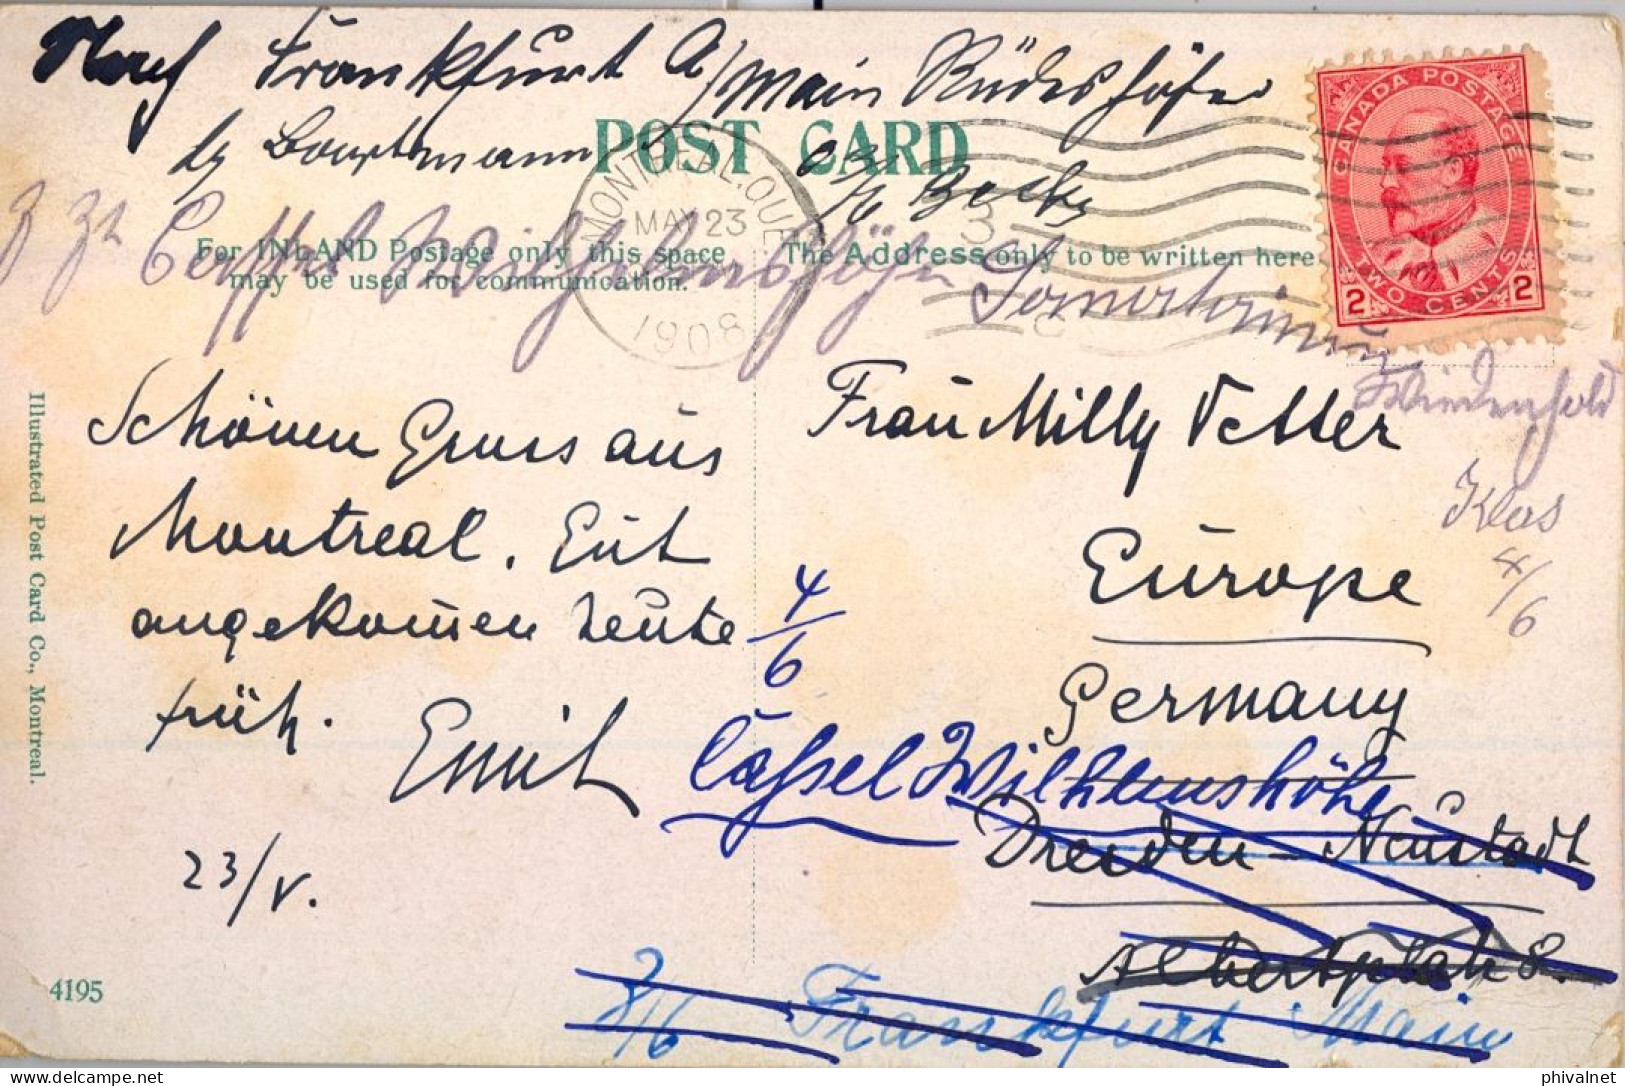 Nach Frankfurt a/Main Rüdeshöfer
POST CARD
MONTREAL.QUE
MAY 23
1908
For INLAND Postage only this space
may be used for communication.
The Address only to be written here
CANADA POSTAGE
2 TWO CENTS 2
z. Zt. Cassel Wilhelmshöhe Sanatorium
Wiederhold
Klas
4/6
Frau Milly Vetter
Europe
Germany
Cassel Wilhelmshöhe
Dresden-Neustadt
Albertplatz 8.
Frankfurt Main
Schönen Gruss aus
Montreal. Gut
angekommen heute
früh. Emil
4/6
23/V.
Illustrated Post Card Co., Montreal.
4195
phivalnet